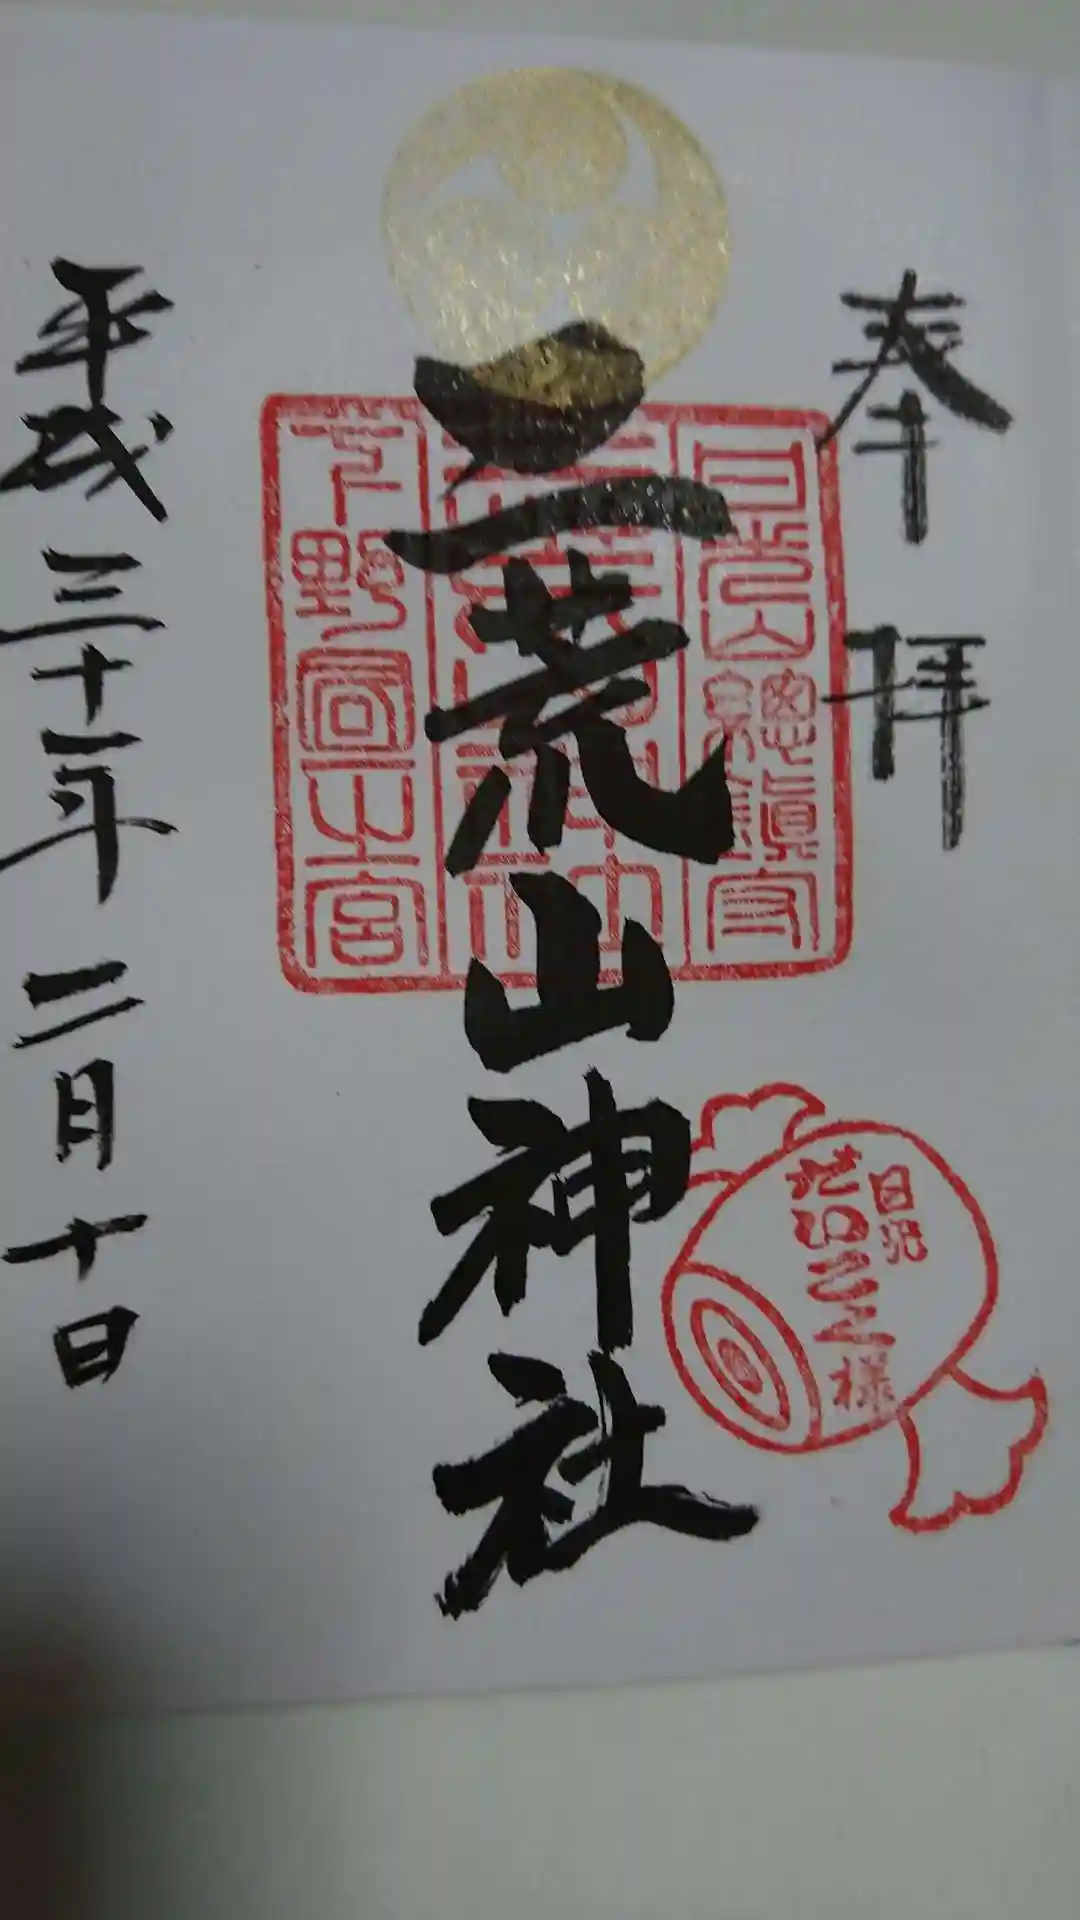 奉拝
日光山総鎮守
二荒山神社
下野国一之宮
日光
だいこく様
平成三十一年二月十日